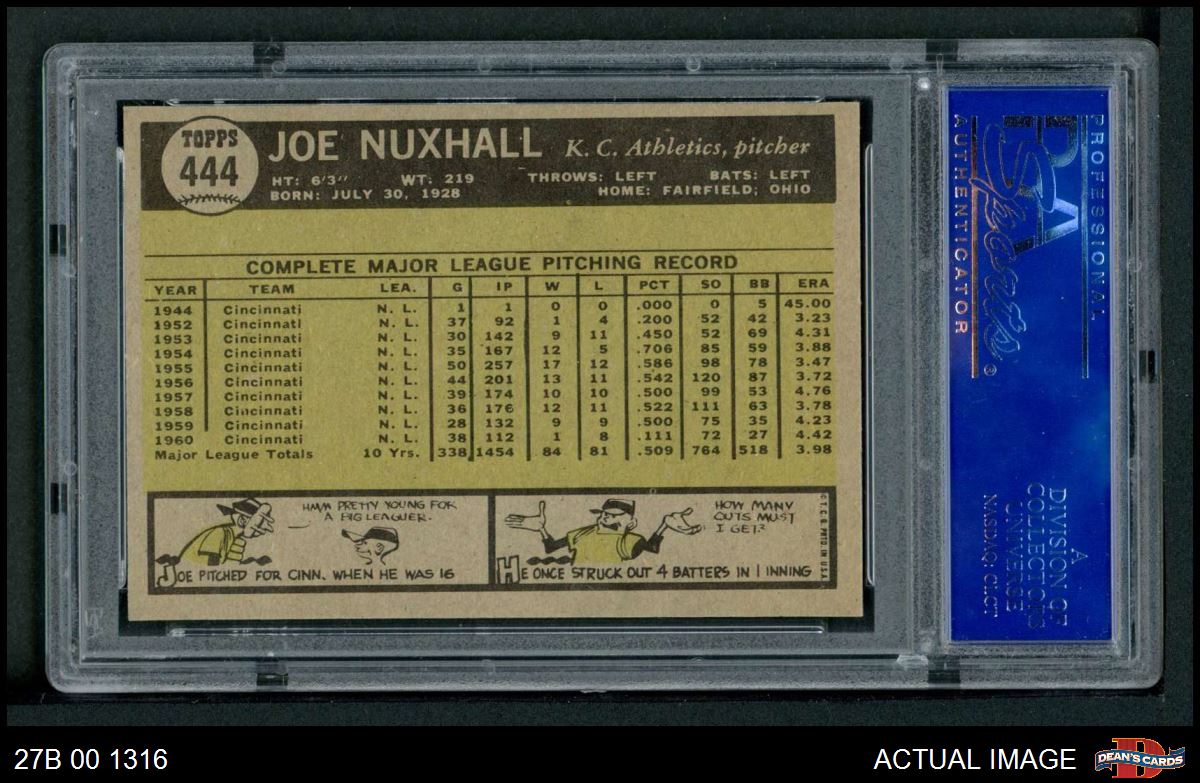 TOPPS
444
JOE NUXHALL K. C. Athletics, pitcher
HT: 6'3" WT: 219 THROWS: LEFT BATS: LEFT
BORN: JULY 30, 1928 HOME: FAIRFIELD, OHIO
COMPLETE MAJOR LEAGUE PITCHING RECORD
YEAR TEAM LEA. G IP W L PCT SO BB ERA
1944 Cincinnati N. L. 1 1 0 0 .000 0 5 45.00
1952 Cincinnati N. L. 37 92 1 4 .200 52 42 3.23
1953 Cincinnati N. L. 30 142 9 11 .450 52 69 4.31
1954 Cincinnati N. L. 35 167 12 5 .706 85 59 3.88
1955 Cincinnati N. L. 50 257 17 12 .586 98 78 3.47
1956 Cincinnati N. L. 44 201 13 11 .542 120 87 3.72
1957 Cincinnati N. L. 39 174 10 10 .500 99 53 4.76
1958 Cincinnati N. L. 36 176 12 11 .522 111 63 3.78
1959 Cincinnati N. L. 28 132 9 9 .500 75 35 4.23
1960 Cincinnati N. L. 38 112 1 8 .111 72 27 4.42
Major League Totals 10 Yrs. 338 1454 84 81 .509 764 518 3.98
HMM PRETTY YOUNG FOR
A BIG LEAGUER.
JOE PITCHED FOR CINN. WHEN HE WAS 16
HOW MANY
OUTS MUST
I GET?
HE ONCE STRUCK OUT 4 BATTERS IN 1 INNING
© T.C.G. PRTD. IN U.S.A.
PROFESSIONAL
PSA
Sports
®
AUTHENTICATOR
A
DIVISION OF
COLLECTORS
UNIVERSE
NASDAQ: CLCT
27B 00 1316
ACTUAL IMAGE
D
DEAN'S CARDS